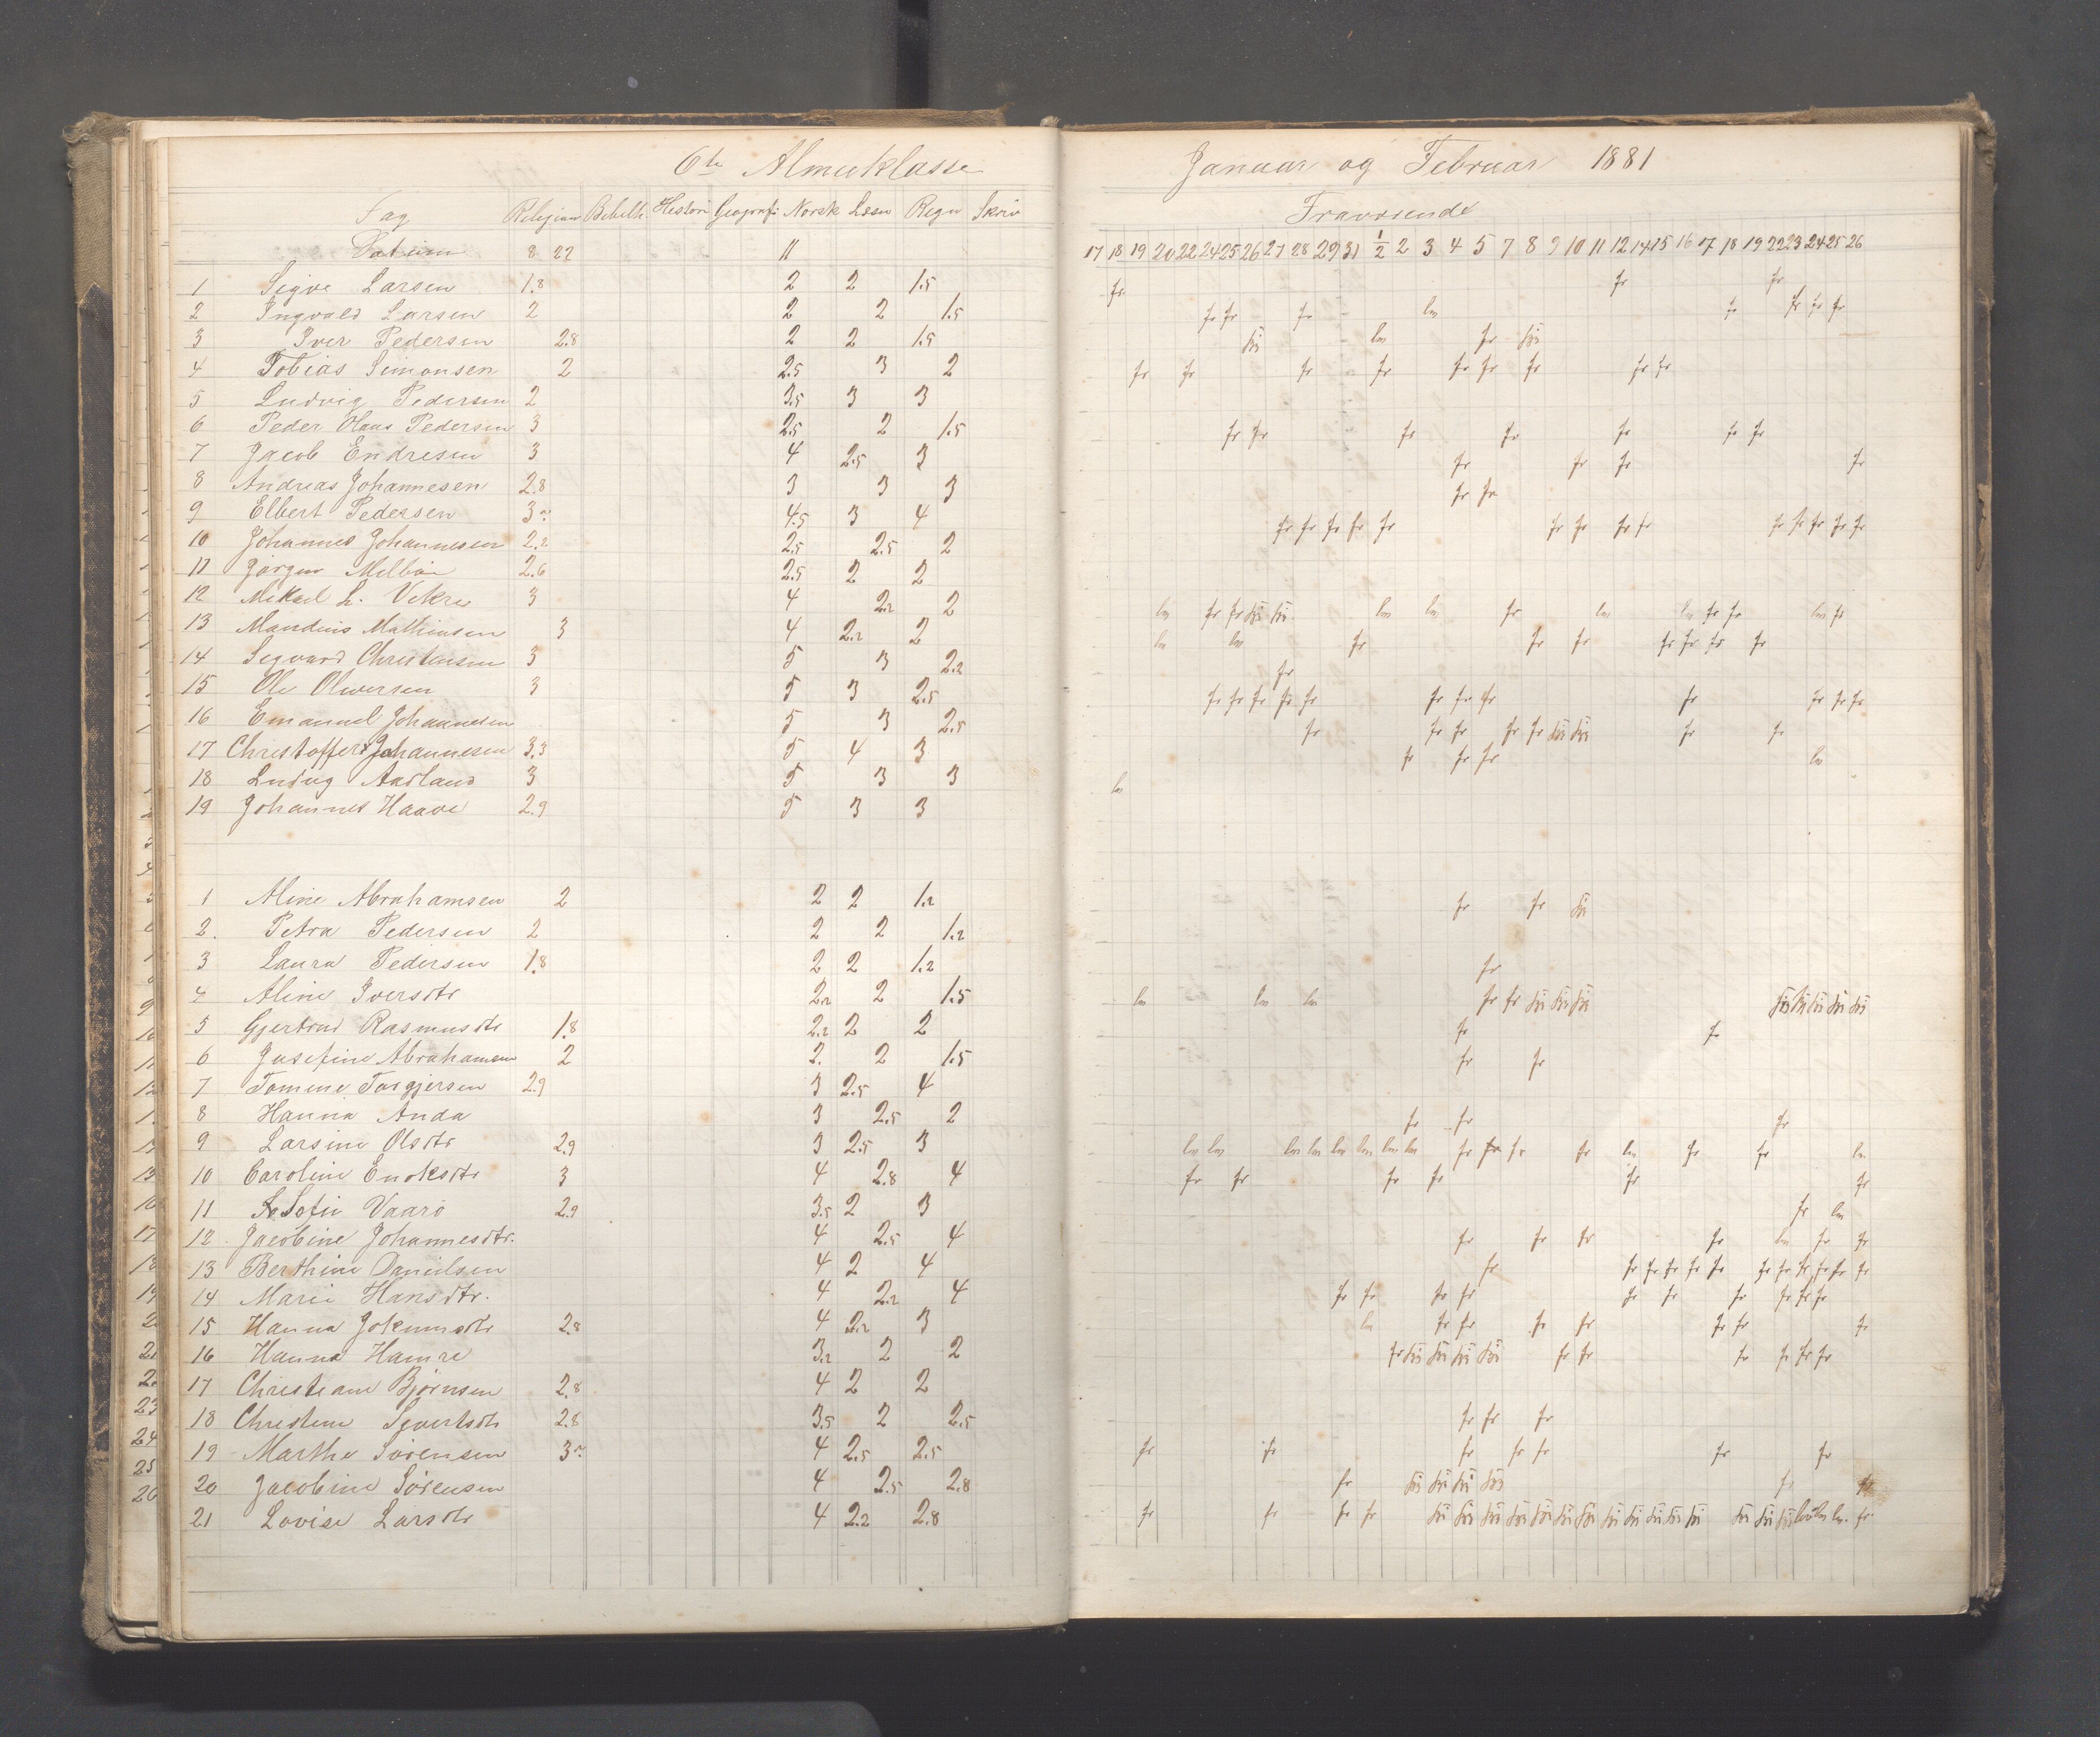 6te Almueklasse
Fag Religion Bibelh. Histori Geografi Norsk Læsn Regn Skriv
Datum 8 22 11
1 Sigve Larsen 1.8 2 2 1.5
2 Ingvald Larsen 2 2 2 1.5
3 Iver Pedersen 2.8 2 2 1.5
4 Tobias Simonsen 2 2.5 3 2
5 Ludvig Pedersen 2 3.5 3 3
6 Peder Olaus Pedersen 3 2.5 2 1.5
7 Jacob Endresen 3 4 2.5 3
8 Andreas Johannesen 2.8 3 3 3
9 Elbert Pedersen 3 4.5 3 4
10 Johannes Johannesen 2.2 2.5 2.5 2
11 Jørgen 2.6 2.5 2 2
12 Mikael L. 3 4 2.2 2
13 Mandius Mathiasen 3 4 2.2 2
14 Sigvard Christensen 3 5 3 2.2
15 Ole Oliversen 3 5 3 2.5
16 Emanuel Johannesen 5 3 2.5
17 Christoffer Johannesen 3.3 5 4 3
18 Ludvig Aarland 3 5 3 3
19 Johannes Haave 2.9 5 3 3
1 Aline Abrahamsen 2 2 2 1.2
2. Petra Pedersen 2 2 2 1.2
3 Laura Pedersen 1.8 2 2 1.2
4 Aline Iversdtr 2.2 2 1.5
5 Gjertrud Rasmusdtr 1.8 2.2 2 2
6 Josefine Abrahamsen 2 2. 2 1.5
7 Tomine Torgjersen 2.9 3 2.5 4
8 Hanna Anda 3 2.5 2
9 Larsine Olsdtr 2.9 3 2.5 3
10 Caroline Enoksdtr 3 4 2.8 4
11 Sofie Vaarø 2.9 3.5 2 3
12. Jacobine Johannesdtr. 4 2.5 4
13 Berthine Danielsen 4 2 4
14 Marie Hansdtr. 4 2.2 4
15 Hanna Jokumsdtr 2.8 4 2.2 3
16 Hanna Hamre 3.2 2 2
17 Christiane Bjørnsen 2.8 4 2 2
18 Christine Sivertsdtr 2.8 3.5 2 2.5
19 Marthe Sørensen 3 4 2.5 2.5
20 Jacobine Sørensen 4 2.5 2.8
21 Lovise Larsdtr 4 2.2 2.8
Januar og Februar 1881
Fraværende
17 18 19 20 22 24 25 26 27 28 29 31 1/2 2 3 4 5 7 8 9 10 11 12 14 15 16 17 18 19 22 23 24 25 26
fr. fr fr
fr fr fr ln fr fr fr fr
ln fr
fr fr fr fr fr fr fr fr fr
fr fr fr fr fr fr fr
fr fr fr fr
fr fr
fr fr fr fr fr fr fr fr fr fr fr fr fr fr
ln fr fr ln ln fr ln ln fr fr ln fr
ln ln fr fr fr fr fr fr fr
fr
fr fr fr fr fr fr fr fr fr fr fr fr
fr fr fr fr fr fr fr
fr fr fr ln
ln
fr fr
fr
ln ln ln fr fr
fr fr
fr fr
fr fr fr
ln ln ln ln ln ln ln ln fr fr fr fr ln fr fr ln
fr fr fr fr fr fr
fr ln
fr fr fr fr ln fr fr
fr fr fr fr fr fr fr fr fr fr fr fr
fr fr fr fr fr fr fr fr fr fr
ln fr fr fr fr fr fr fr
fr fr fr fr fr fr fr
fr fr fr
fr fr fr fr fr fr fr
fr fr fr
fr fr fr fr ln ln ln fr